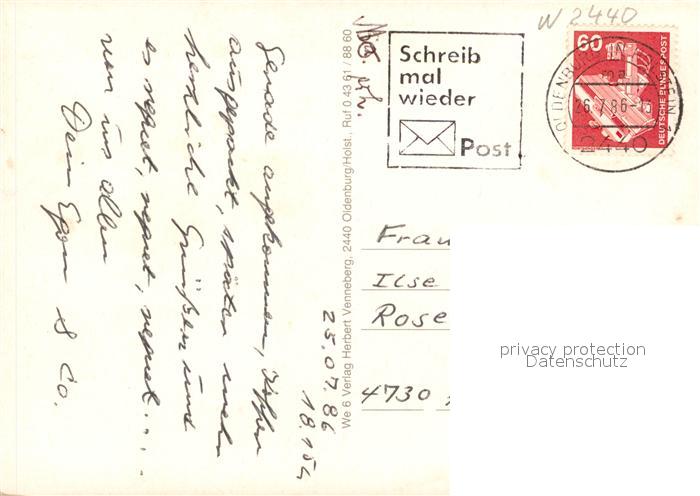 W 2440
Schreib
mal
wieder
Post
60
DEUTSCHE BUNDESPOST
OLDENBURG IN
26.7.86
2440
Frau
Ilse
Rose
4730
privacy protection
Datenschutz
We 6 Verlag Herbert Venneberg, 2440 Oldenburg/Holst., Ruf 0 43 61 / 88 60
25.07.86
18.15h
Gerade angekommen,
ausgepackt, später mehr
herzliche Grüße und
es regnet, regnet, regnet....
von uns allen
Dein Egon & Co.